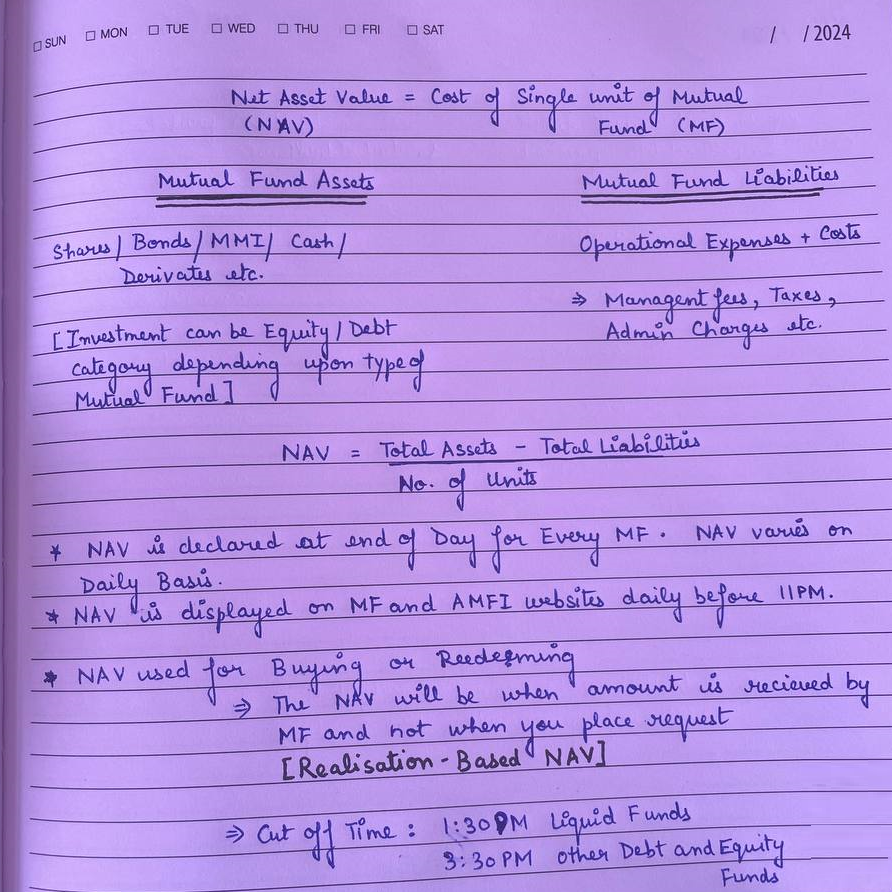 □ SUN □ MON □ TUE □ WED □ THU □ FRI □ SAT / / 2024
Net Asset Value = Cost of Single unit of Mutual
(NAV) Fund (MF)
Mutual Fund Assets Mutual Fund Liabilities
Shares / Bonds / MMI / Cash / Operational Expenses + Costs
Derivates etc.
⇒ Managent fees, Taxes,
[Investment can be Equity / Debt Admin Charges etc.
category depending upon type of
Mutual Fund]
NAV = Total Assets - Total Liabilities
No. of Units
* NAV is declared at end of Day for Every MF. NAV varies on
Daily Basis.
* NAV is displayed on MF and AMFI websites daily before 11PM.
* NAV used for Buying or Reedeeming
⇒ The NAV will be when amount is recieved by
MF and not when you place request
[Realisation-Based NAV]
⇒ Cut off Time : 1:30PM Liquid Funds
3:30PM other Debt and Equity
Funds